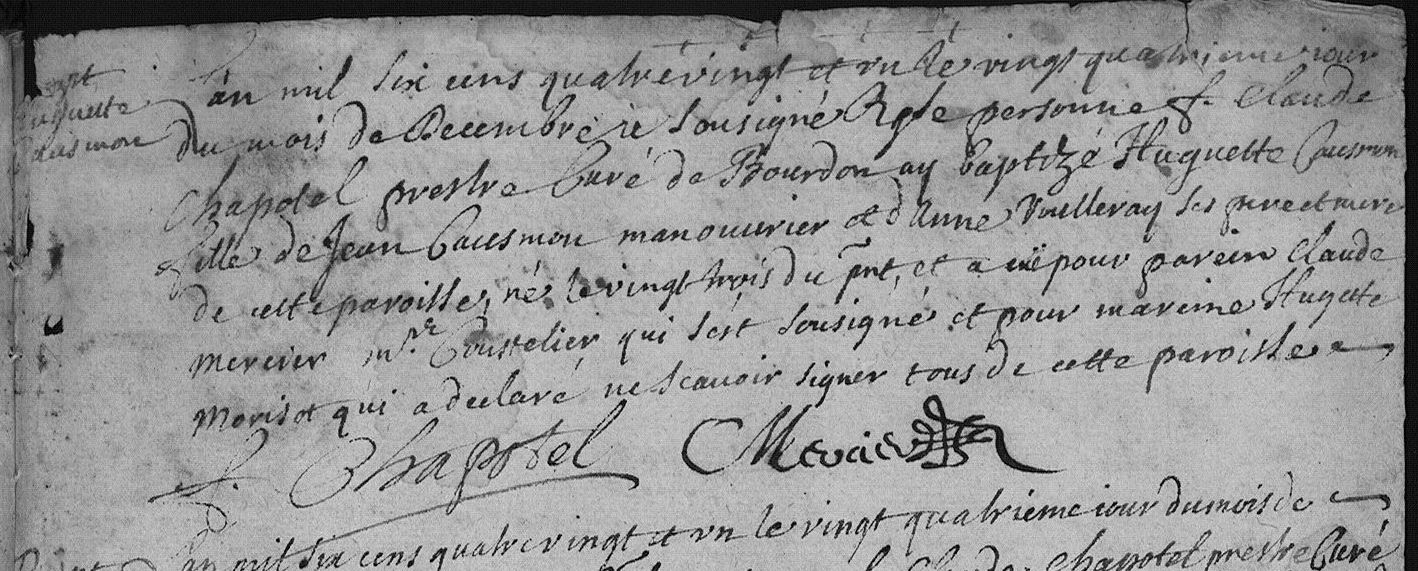 Huguette
Causmon
L'an mil six cens quatrevingt et un le vingt quatrieme iour
du mois de Decembre ie sousigné Rgse personne f. Claude
Chapotel prestre Curé de Bourdon ay baptizé Huguette Causmon
fille de Jean Causmon manouvrier et d'Anne Voulleray ses pere et mere
de cette paroisse, né le vingt trois du pnt, et a eü pour parein Claude
Mercier mre Coustelier qui s'est sousigné et pour mareine Hugette
Morisot qui a declaré ne scavoir signer tous de cette paroisse
f. Chapotel CMercier
L'an mil six cens quatrevingt et un le vingt quatrieme iour du mois de
Claude Chapotel prestre Curé